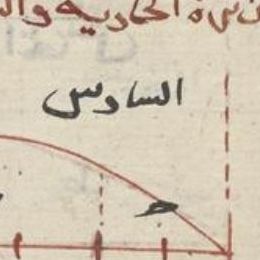 الحادية وال
السادس
ح